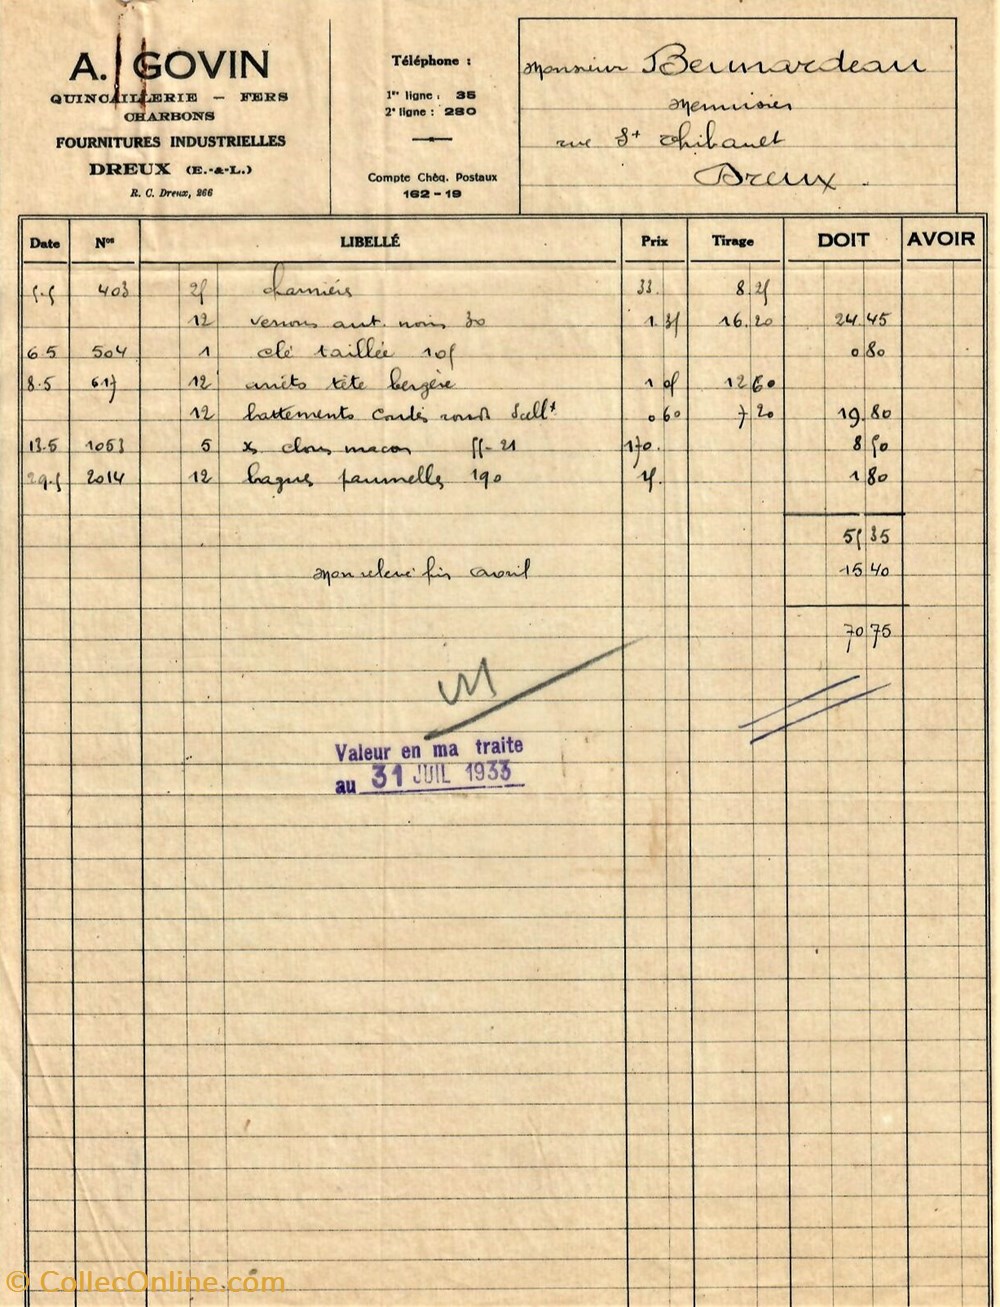 A. GOVIN
QUINCAILLERIE – FERS
CHARBONS
FOURNITURES INDUSTRIELLES
DREUX (E.-&-L.)
R. C. Dreux, 266
Téléphone :
1re ligne : 35
2e ligne : 280
Compte Chèq. Postaux
162 - 19
Monsieur Beunardeau
Menuisier
rue St Thibault
Dreux
Date Nos LIBELLÉ Prix Tirage DOIT AVOIR
5.5 403 25 charnières 33. 8 25
12 verrous aut. noirs 30 1.35 16.20 24 45
6 5 504 1 clé taillée 105 0 80
8.5 617 12 arrêts tête bergère 1 05 12 60
12 battements coudés ronds 0 60 7 20 19.80
13.5 1053 5 clous macon 55-21 170. 8 50
29.5 2014 12 bagues paumelles 190 15. 1 80
55 35
Mon relevé fin avril 15 40
70 75
Valeur en ma traite
au 31 JUIL 1933
© CollecOnline.com